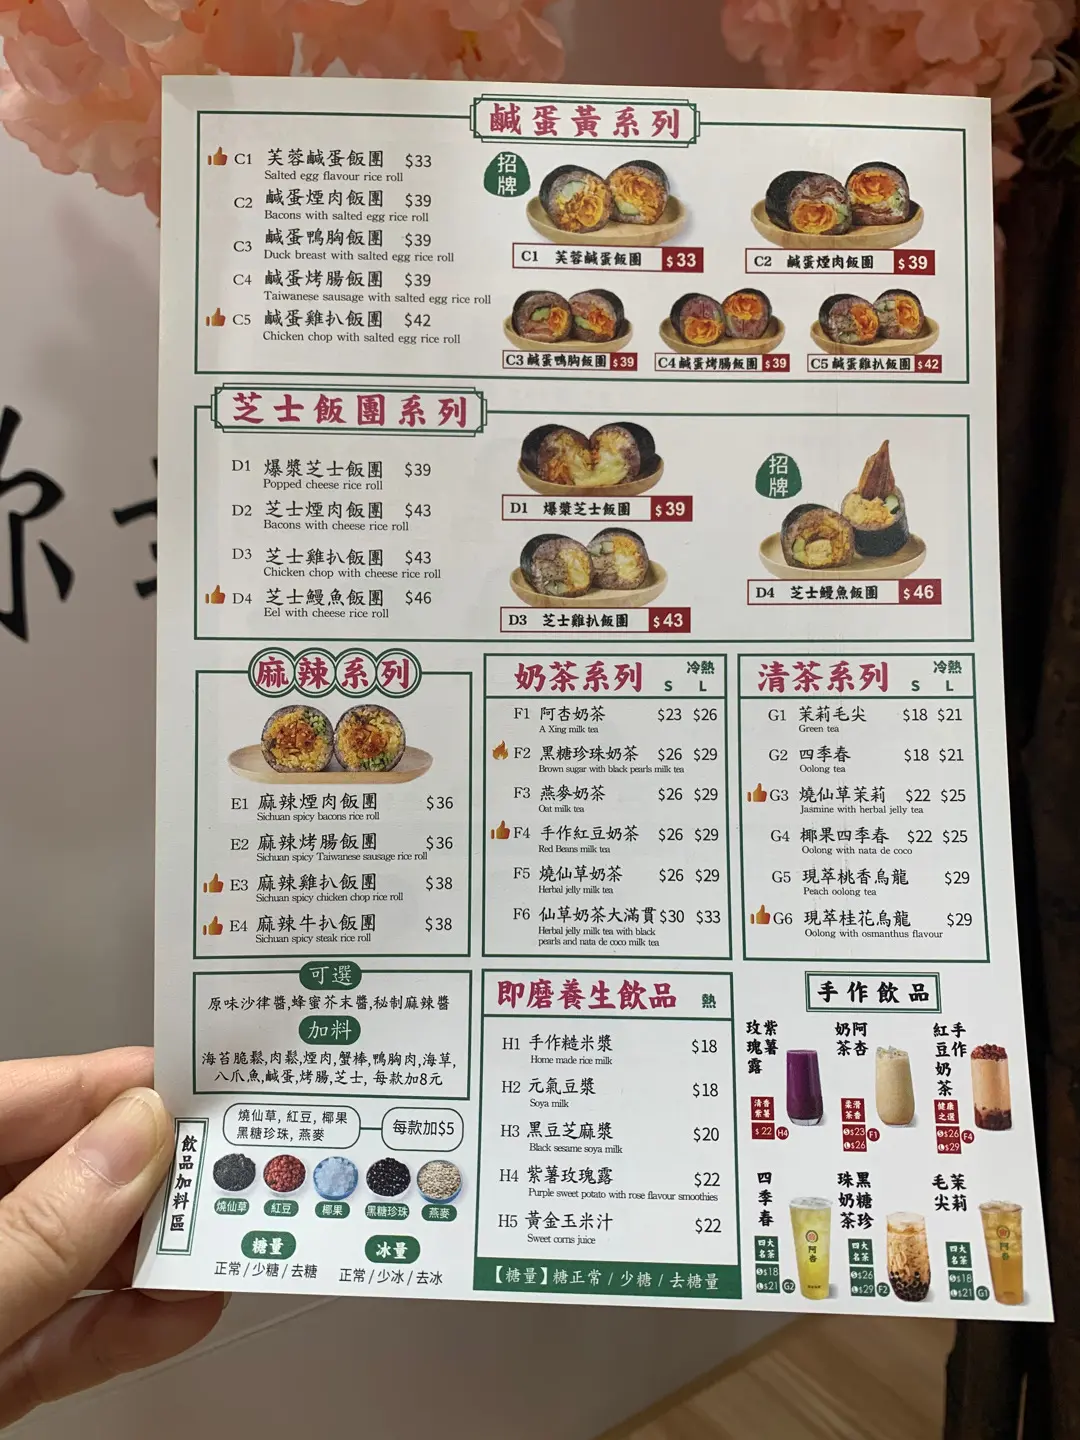 鹹蛋黃系列
C1 芙蓉鹹蛋飯團 $33
Salted egg flavour rice roll
C2 鹹蛋煙肉飯團 $39
Bacons with salted egg rice roll
C3 鹹蛋鴨胸飯團 $39
Duck breast with salted egg rice roll
C4 鹹蛋烤腸飯團 $39
Taiwanese sausage with salted egg rice roll
C5 鹹蛋雞扒飯團 $42
Chicken chop with salted egg rice roll
招牌
C1 芙蓉鹹蛋飯團 $33
C2 鹹蛋煙肉飯團 $39
C3 鹹蛋鴨胸飯團 $39
C4 鹹蛋烤腸飯團 $39
C5 鹹蛋雞扒飯團 $42
芝士飯團系列
D1 爆漿芝士飯團 $39
Popped cheese rice roll
D2 芝士煙肉飯團 $43
Bacons with cheese rice roll
D3 芝士雞扒飯團 $43
Chicken chop with cheese rice roll
D4 芝士鰻魚飯團 $46
Eel with cheese rice roll
D1 爆漿芝士飯團 $39
D3 芝士雞扒飯團 $43
招牌
D4 芝士鰻魚飯團 $46
麻辣系列
E1 麻辣煙肉飯團 $36
Sichuan spicy bacons rice roll
E2 麻辣烤腸飯團 $36
Sichuan spicy Taiwanese sausage rice roll
E3 麻辣雞扒飯團 $38
Sichuan spicy chicken chop rice roll
E4 麻辣牛扒飯團 $38
Sichuan spicy steak rice roll
奶茶系列 冷熱
S L
F1 阿杏奶茶 $23 $26
A Xing milk tea
F2 黑糖珍珠奶茶 $26 $29
Brown sugar with black pearls milk tea
F3 燕麥奶茶 $26 $29
Oat milk tea
F4 手作紅豆奶茶 $26 $29
Red Beans milk tea
F5 燒仙草奶茶 $26 $29
Herbal jelly milk tea
F6 仙草奶茶大滿貫 $30 $33
Herbal jelly milk tea with black
pearls and nata de coco milk tea
清茶系列 冷熱
S L
G1 茉莉毛尖 $18 $21
Green tea
G2 四季春 $18 $21
Oolong tea
G3 燒仙草茉莉 $22 $25
Jasmine with herbal jelly tea
G4 椰果四季春 $22 $25
Oolong with nata de coco
G5 現萃桃香烏龍 $29
Peach oolong tea
G6 現萃桂花烏龍 $29
Oolong with osmanthus flavour
可選
原味沙律醬,蜂蜜芥末醬,秘制麻辣醬
加料
海苔脆鬆,肉鬆,煙肉,蟹棒,鴨胸肉,海草,
八爪魚,鹹蛋,烤腸,芝士, 每款加8元
飲品加料區
燒仙草, 紅豆, 椰果
黑糖珍珠, 燕麥
每款加$5
燒仙草 紅豆 椰果 黑糖珍珠 燕麥
糖量
正常 / 少糖 / 去糖
冰量
正常 / 少冰 / 去冰
即磨養生飲品 熱
H1 手作糙米漿 $18
Home made rice milk
H2 元氣豆漿 $18
Soya milk
H3 黑豆芝麻漿 $20
Black sesame soya milk
H4 紫薯玫瑰露 $22
Purple sweet potato with rose flavour smoothies
H5 黃金玉米汁 $22
Sweet corns juice
【糖量】糖正常 / 少糖 / 去糖量
手作飲品
紫薯玫瑰露
清香紫薯
$22 H4
阿杏奶茶
柔滑茶香
S$23 L$26 F1
手作紅豆奶茶
健康之選
S$26 L$29 F4
四季春
四大名茶
S$18 L$21 G2
阿杏
黑糖珍珠奶茶
四大名茶
S$26 L$29 F2
茉莉毛尖
四大名茶
S$18 L$21 G1